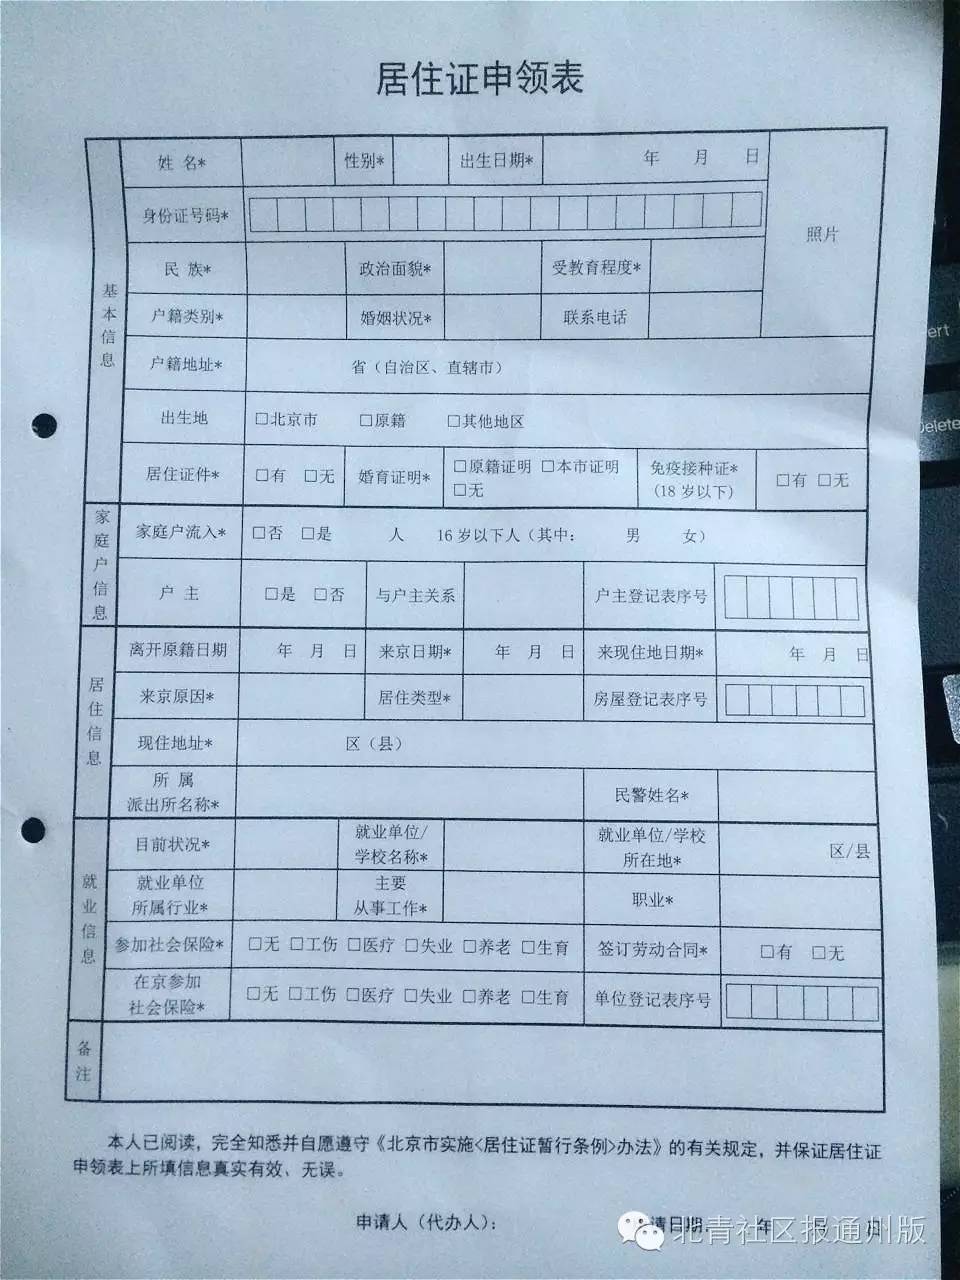 居住证申领表
基本信息
姓 名* 性别* 出生日期* 年 月 日
照片
身份证号码*
民 族* 政治面貌* 受教育程度*
户籍类别* 婚姻状况* 联系电话
户籍地址* 省（自治区、直辖市）
出生地 □北京市 □原籍 □其他地区
居住证件* □有 □无 婚育证明* □原籍证明 □本市证明 □无 免疫接种证* (18 岁以下) □有 □无
家庭户信息
家庭户流入* □否 □是 人 16 岁以下人（其中： 男 女）
户 主 □是 □否 与户主关系 户主登记表序号
居住信息
离开原籍日期 年 月 日 来京日期* 年 月 日 来现住地日期* 年 月 日
来京原因* 居住类型* 房屋登记表序号
现住地址* 区（县）
所 属
派出所名称* 民警姓名*
就业信息
目前状况* 就业单位/学校名称* 就业单位/学校所在地* 区/县
就业单位所属行业* 主要从事工作* 职业*
参加社会保险* □无 □工伤 □医疗 □失业 □养老 □生育 签订劳动合同* □有 □无
在京参加社会保险* □无 □工伤 □医疗 □失业 □养老 □生育 单位登记表序号
备注
本人已阅读，完全知悉并自愿遵守《北京市实施<居住证暂行条例>办法》的有关规定，并保证居住证
申领表上所填信息真实有效、无误。
申请人（代办人）： 请日期 年 日
北青社区报通州版
ert
Delete